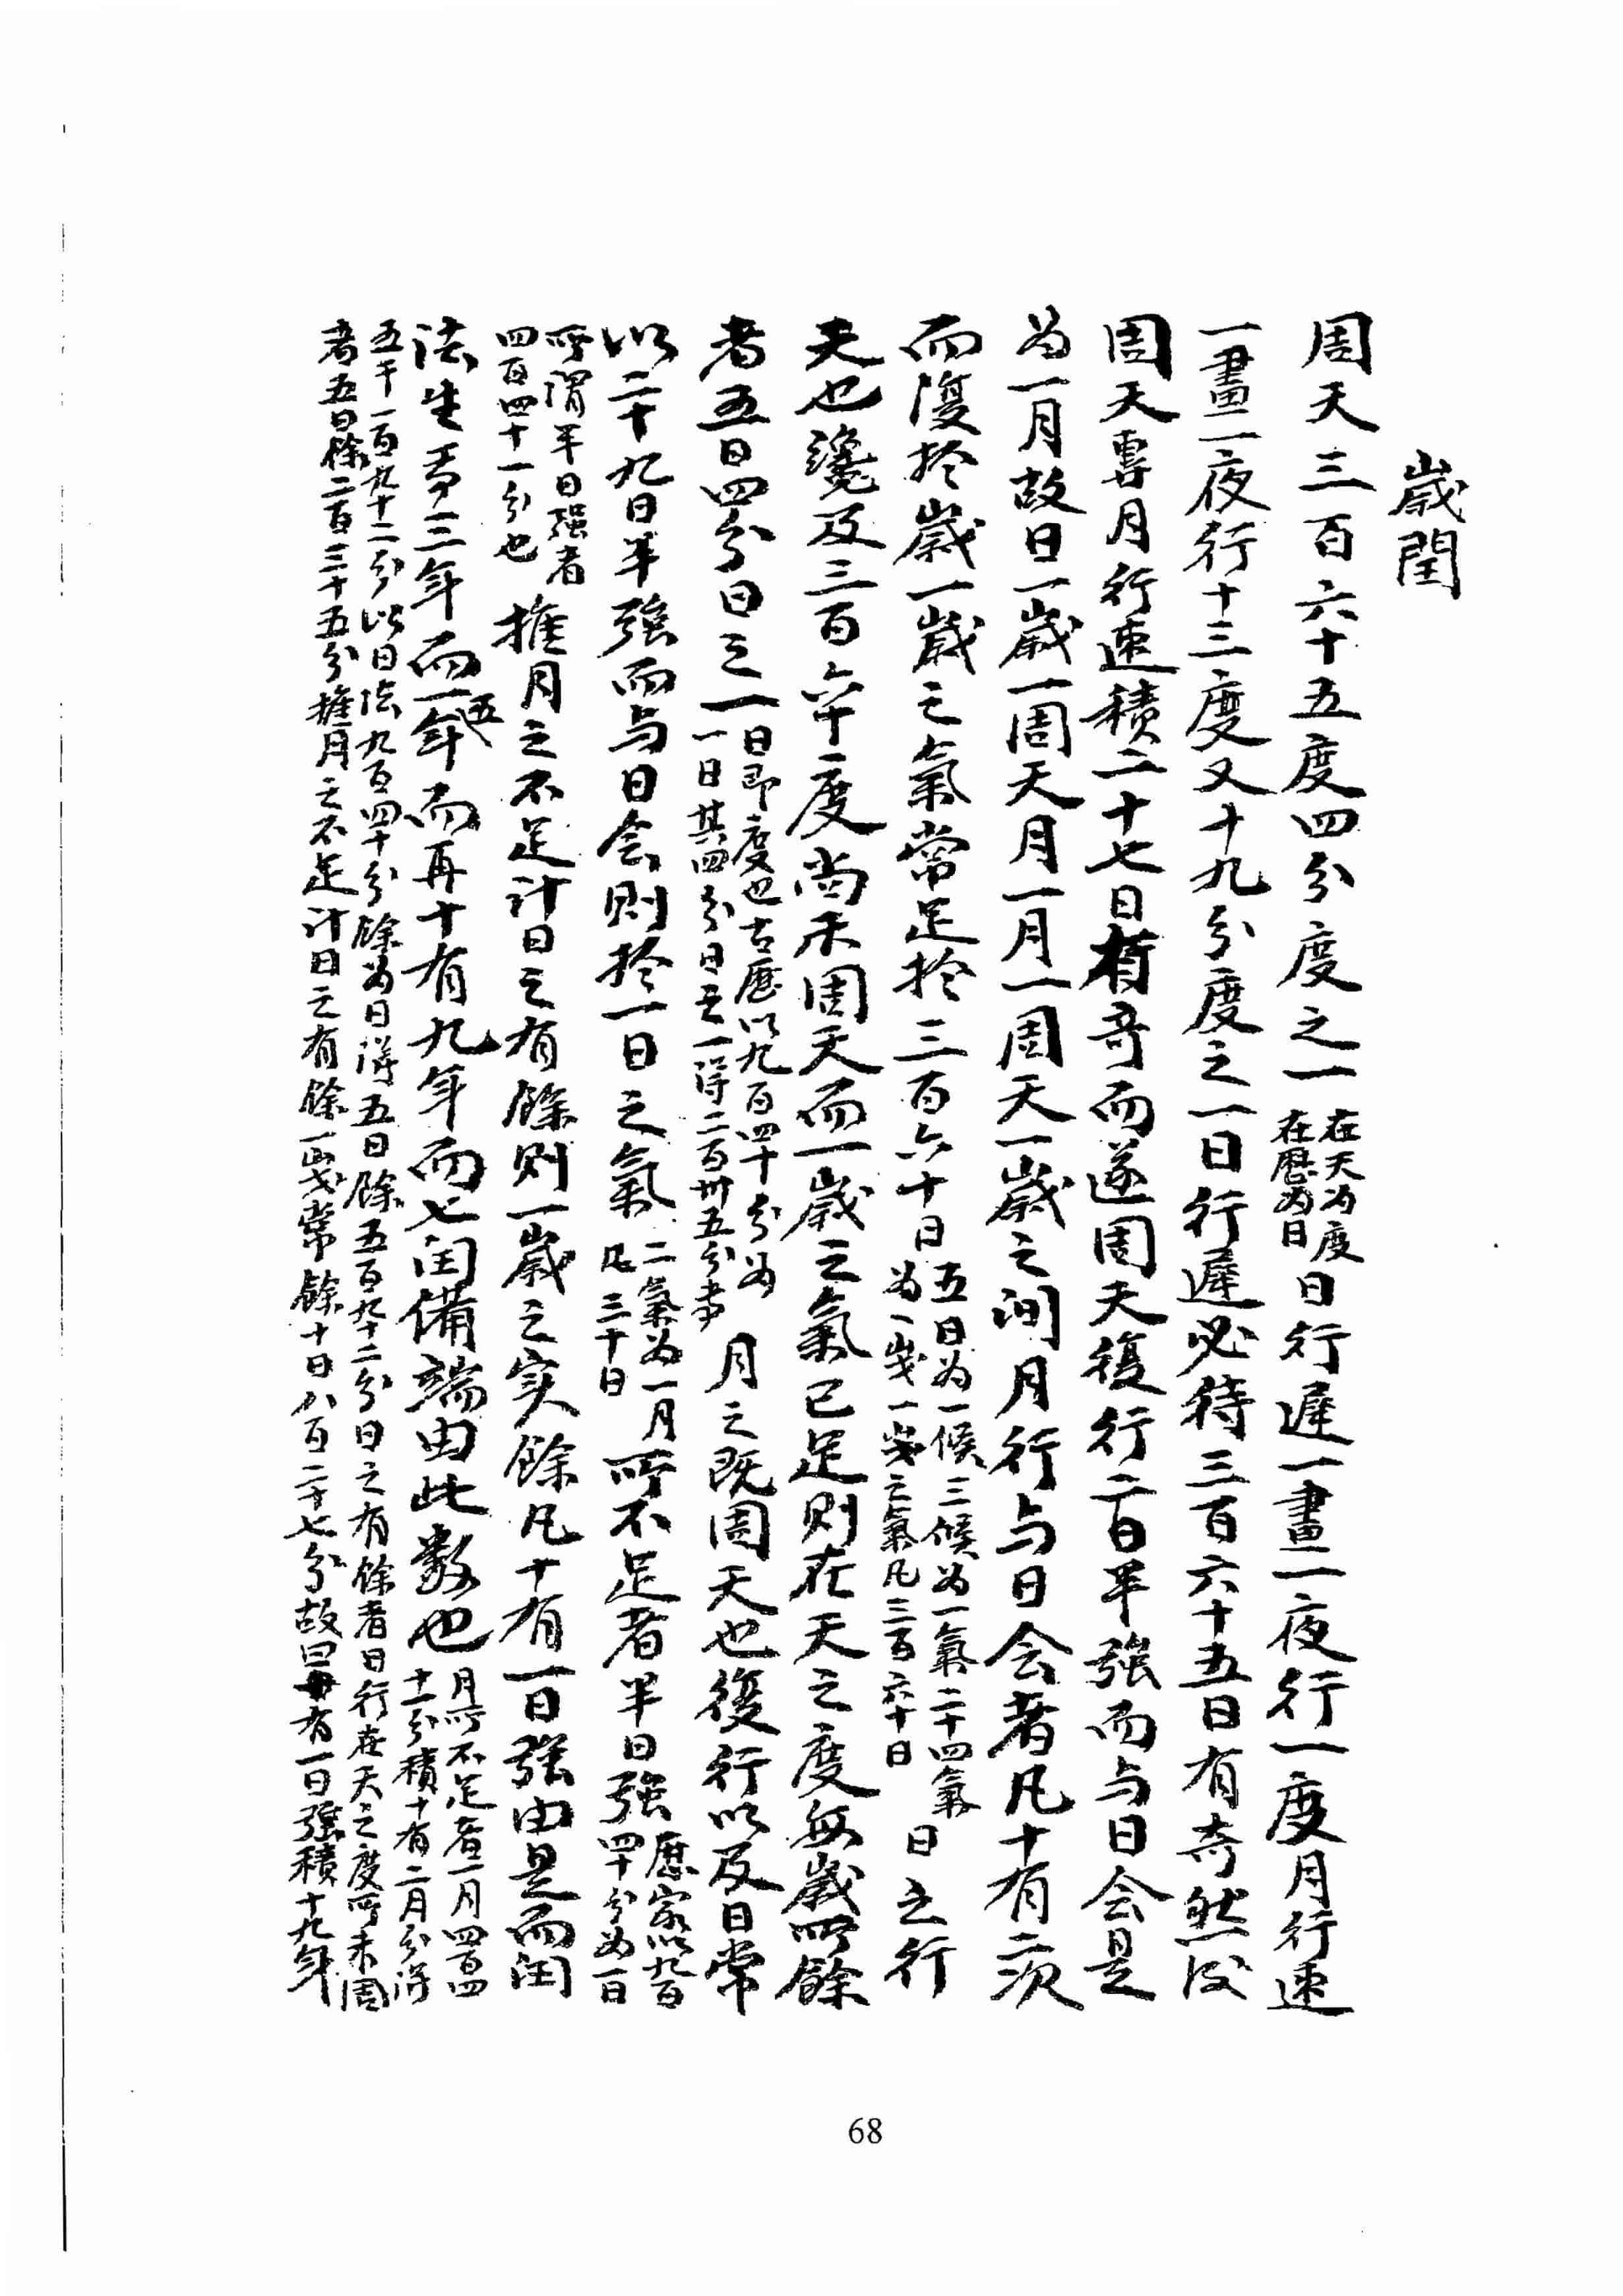 歲閏
周天三百六十五度四分度之一在天为度在歷为日日行遲一晝一夜行一度月行速
一晝一夜行十三度又十九分度之一日行遲必待三百六十五日有奇然後
周天專月行速積二十七日有奇而遂周天復行二日半強而与日会是
为一月故日一歲一周天月一月一周天一歲之间月行与日会者凡十有二次
而復於歲一歲之氣常足於三百六十日五日为一候三候为一氣二十四氣为一歲一歲之氣凡三百六十日日之行
天也纔及三百六十度尚未周天而一歲之氣已足則在天之度每歲所餘
者五日四分日之一日即度也古歷以九百四十分为一日其四分日之一得二百卅五分者月之既周天也復行以及日常
以二十九日半強而与日会則於一日之氣二氣为一月凡三十日所不足者半日強歷家以九百四十分为一日
所謂半日強者四百四十一分也推月之不足计日之有餘則一歲之实餘凡十有一日強由是而闰
法生焉三年而一五年而再十有九年而七闰備端由此數也月所不足者一月四百四十一分積十有二月分得
五千一百九十二分以日法九百四十分除为日得五日餘五百九十二分日之有餘者日行在天之度所未周
者五日餘二百三十五分推月之不足计日之有餘一歲常餘十日八百二十七分故曰有一日強積十九年
68